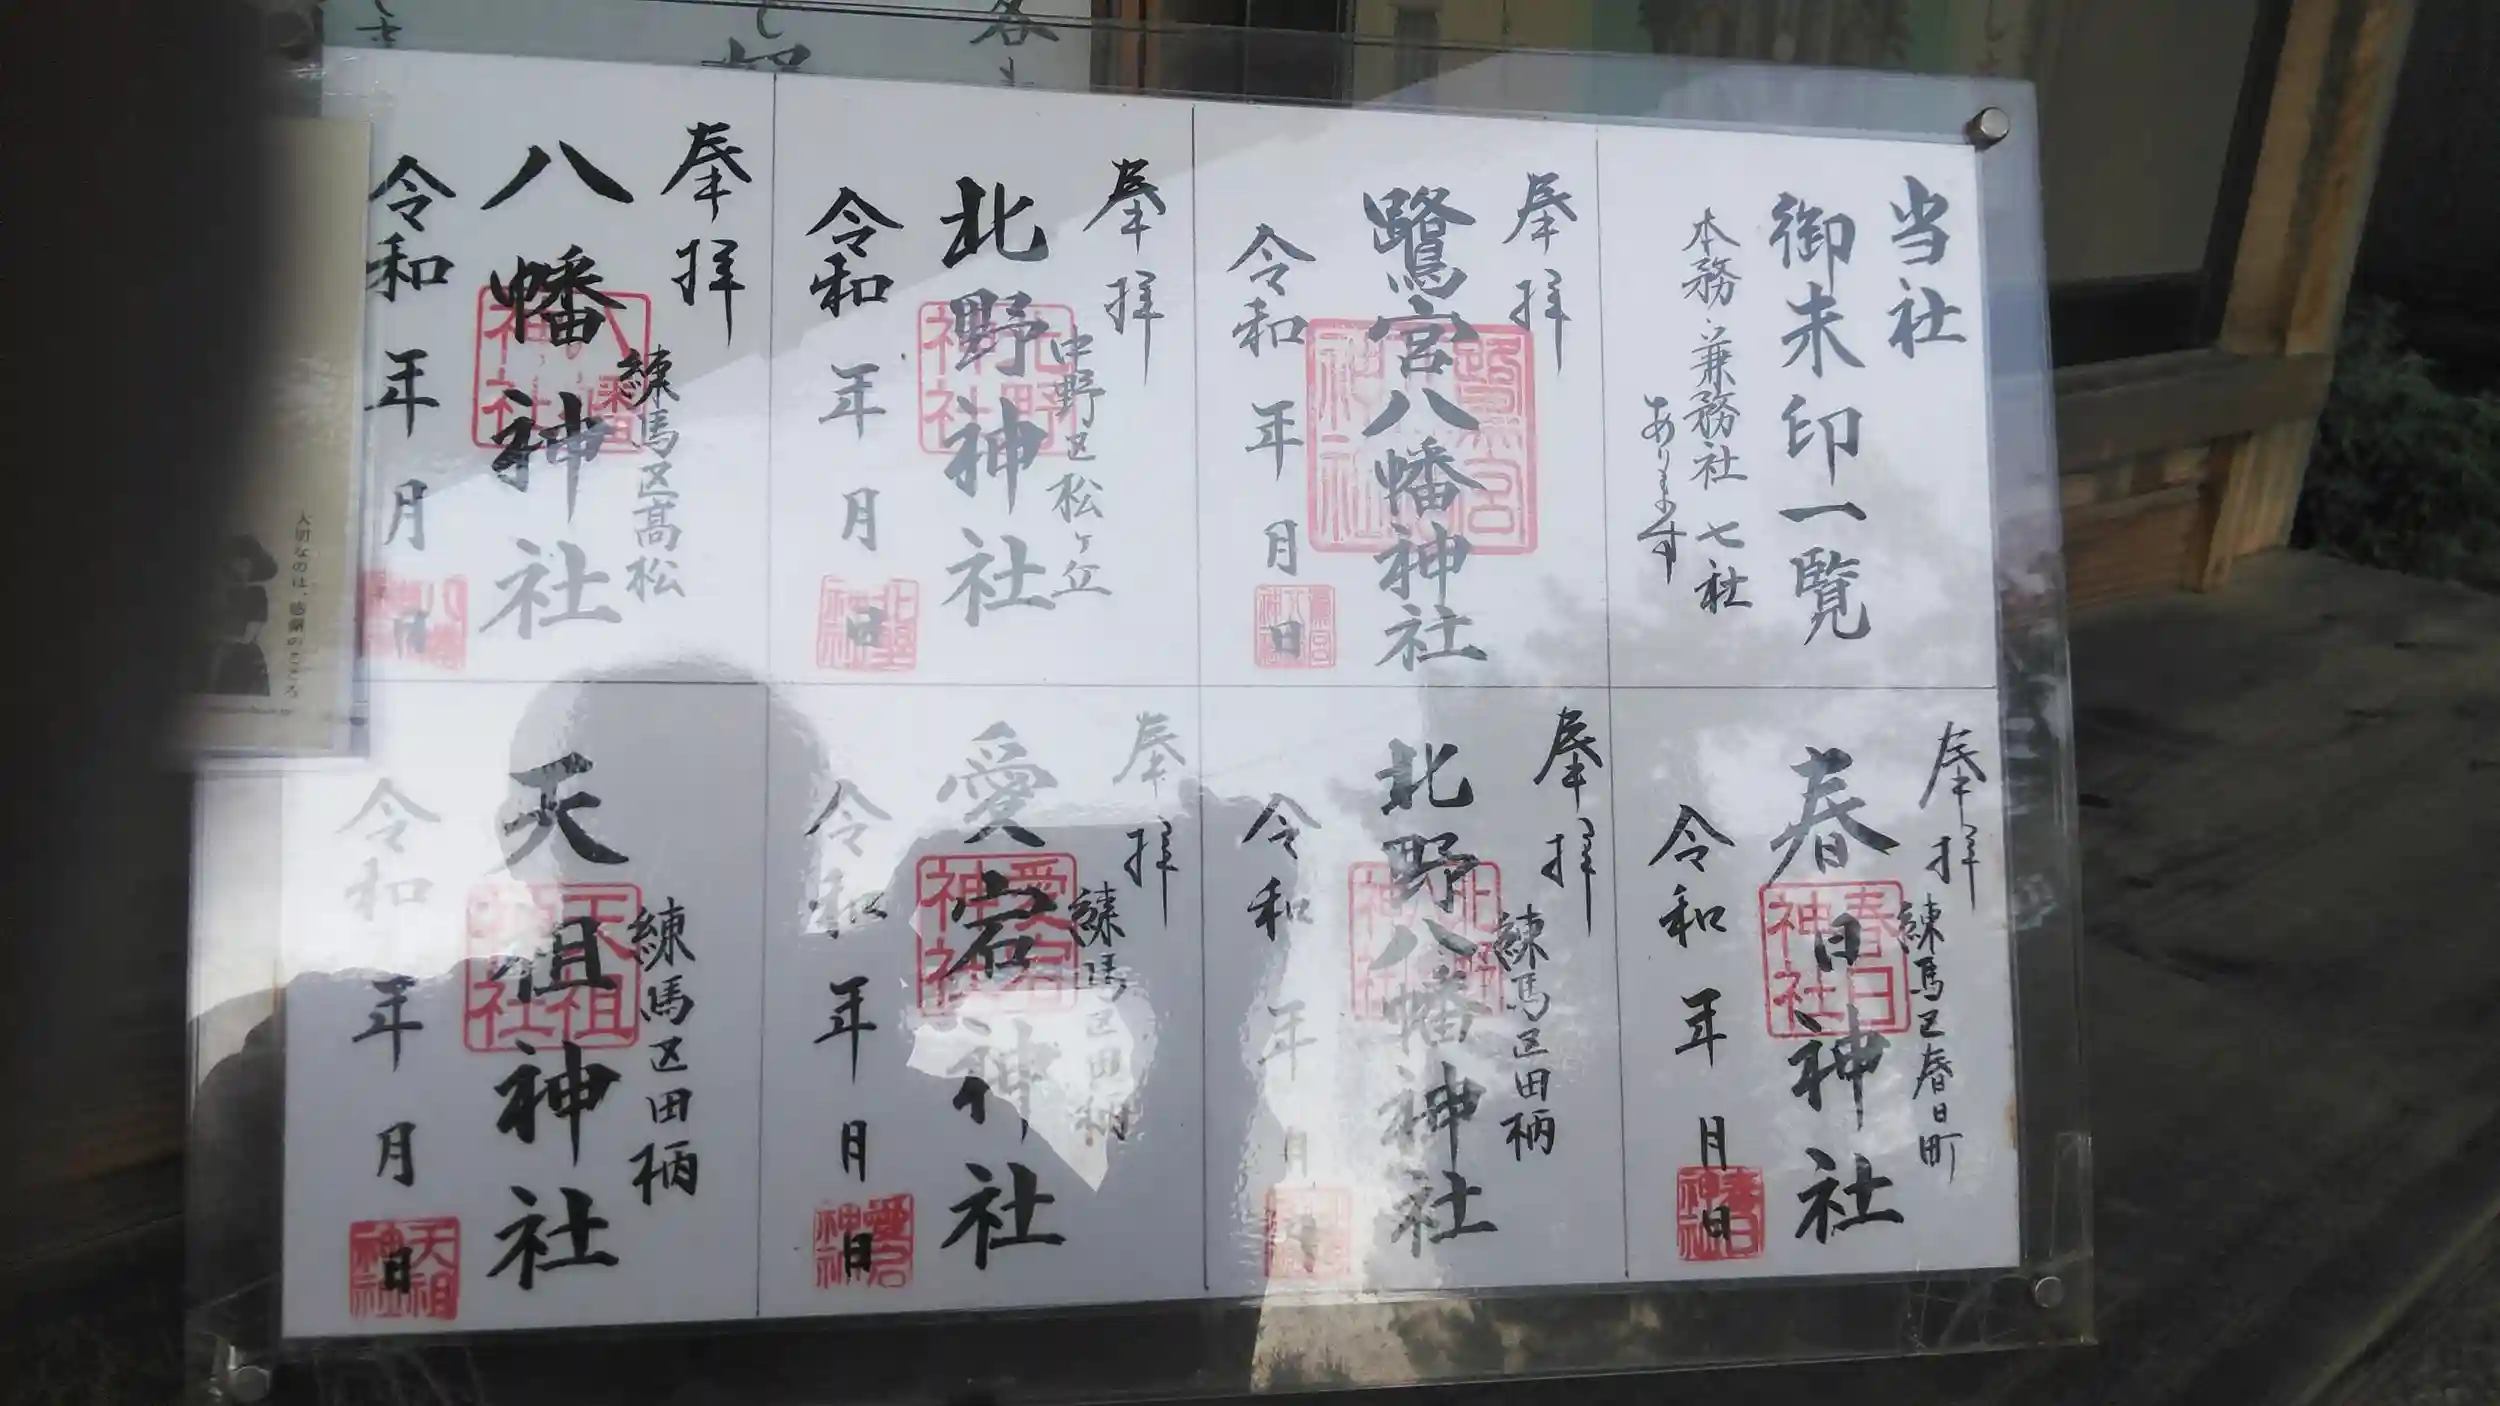 当社
御朱印一覧
本務・兼務社 七社
あります
奉拝
鷺宮八幡神社
令和 年 月 日
奉拝
中野区松ヶ丘
北野神社
令和 年 月 日
奉拝
練馬区高松
八幡神社
令和 年 月 日
奉拝
練馬区春日町
春日神社
令和 年 月 日
奉拝
練馬区田柄
北野八幡神社
令和 年 月 日
奉拝
練馬区田柄
愛宕神社
令和 年 月 日
練馬区田柄
天祖神社
令和 年 月 日
大切なのは、感謝のこころ